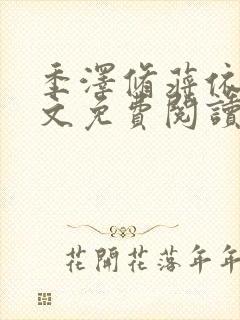 季澤脩蔣依
文免費閱讀
花開花落年年